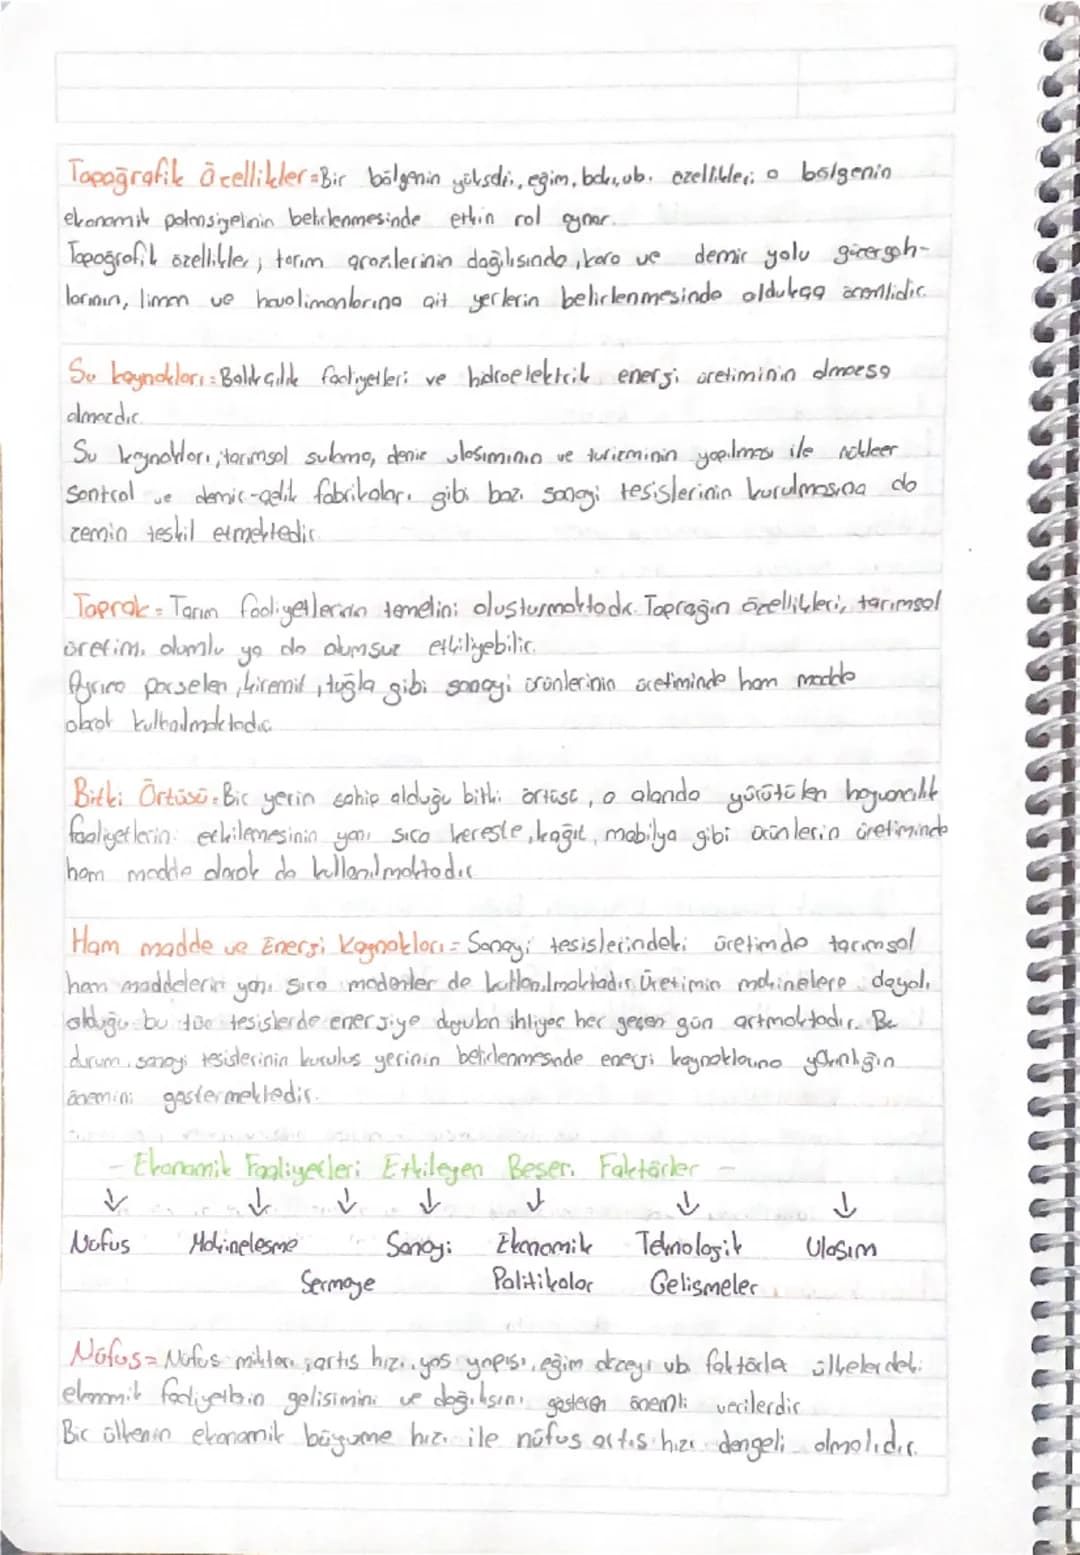 Topoğrafik Özellikler = Bir bölgenin yükselti, eğim, bakı, vb. özellikleri o bölgenin
ekonomik potansiyelinin belirlenmesinde etkin rol oynar.
Topoğrafik özellikler; tarım arazilerinin dağılışında, kara ve demir yolu güzergah-
larının, liman ve havalimanlarına ait yerlerin belirlenmesinde oldukça önemlidir.
Su kaynakları = Balıkçılık faaliyetleri ve hidroelektrik enerji üretiminin olmazsa
olmazdır.
Su kaynakları, tarımsal sulama, deniz ulaşımının ve turizminin yapılması ile nükleer
santral ve demir-çelik fabrikaları gibi bazı sanayi tesislerinin kurulmasına da
zemin teşkil etmektedir.
Toprak = Tarım faaliyetlerinin temelini oluşturmaktadır. Toprağın özellikleri, tarımsal
üretimi olumlu ya da olumsuz etkiliyebilir.
Ayrıca porselen, kiremit, tuğla gibi sanayi ürünlerinin üretiminde ham madde
olarak kullanılmaktadır.
Bitki Örtüsü = Bir yerin sahip olduğu bitki örtüsü, o alanda yürütülen hayvancılık
faaliyetlerini etkilemesinin yanı sıra kereste, kağıt, mobilya gibi ürünlerin üretiminde
ham madde olarak da kullanılmaktadır
Ham madde ve Enerji Kaynakları = Sanayi tesislerindeki üretimde tarımsal
ham maddelerin yanı sıra madenler de kullanılmaktadır. Üretimin makinelere dayalı
olduğu bu tür tesislerde enerjiye duyulan ihtiyaç her geçen gün artmaktadır. Bu
durum, sanayi tesislerinin kuruluş yerinin belirlenmesinde enerji kaynaklarına yakınlığın
önemini göstermektedir.
- Ekonomik Faaliyetleri Etkileyen Beşeri Faktörler -
↓ ↓ ↓ ↓ ↓ ↓ ↓
Nüfus Makineleşme Sanayi Ekonomik Teknolojik Ulaşım
Sermaye Politikalar Gelişmeler
Nüfus = Nüfus miktarı, artış hızı, yaş yapısı, eğim düzeyi vb faktörler ülkelerdeki
ekonomik faaliyetlerin gelişimini ve dağılışını gösteren önemli verilerdir
Bir ülkenin ekonomik büyüme hızı ile nüfus artış hızı dengeli olmalıdır.